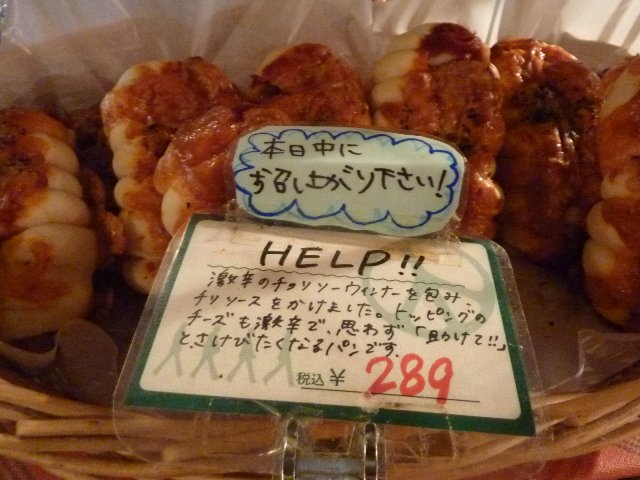 本日中に
お召し上がり下さい!
HELP!!
激辛のチョリソーウィンナーを包み、
チリソースをかけました。トッピングの
チーズも激辛で、思わず「助けて!!」
とさけびたくなるパンです。
税込 ¥ 289